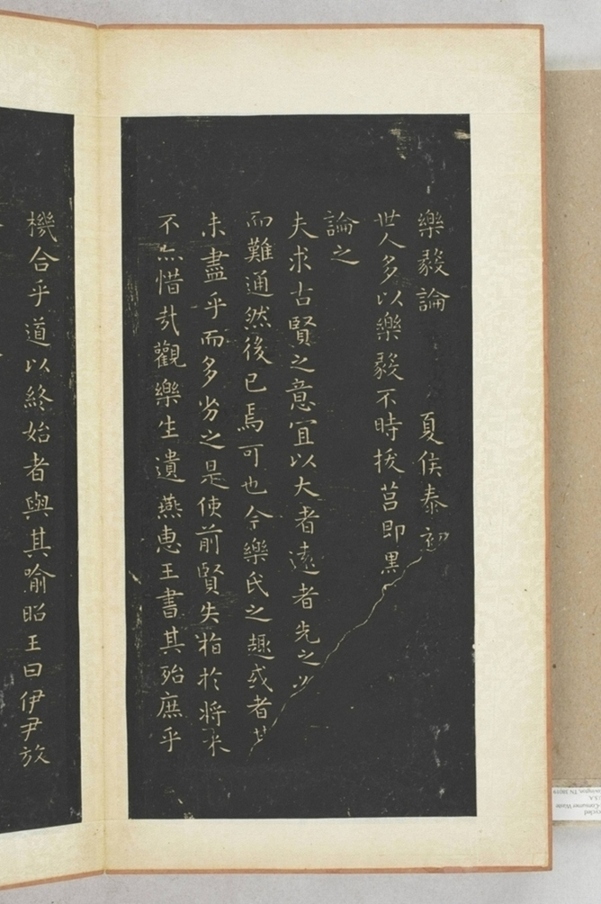 樂毅論 夏侯泰初
世人多以樂毅不時拔莒即墨
論之
夫求古賢之意宜以大者遠者先之必
而難通然後已焉可也今樂氏之趣或者其
未盡乎而多劣之是使前賢失指於將來
不亦惜哉觀樂生遺燕惠王書其殆庶乎
機合乎道以終始者與其喻昭王曰伊尹放